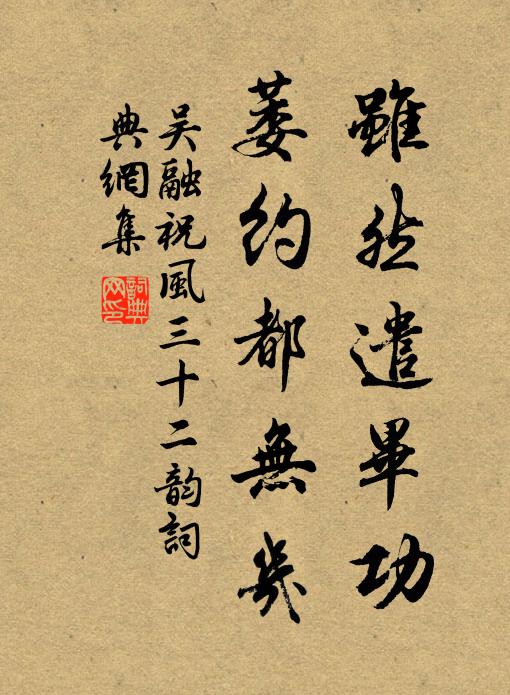 雖然遣畢功
萎約都無幾
吳融祝風三十二韵詞
典網集
詞典网印